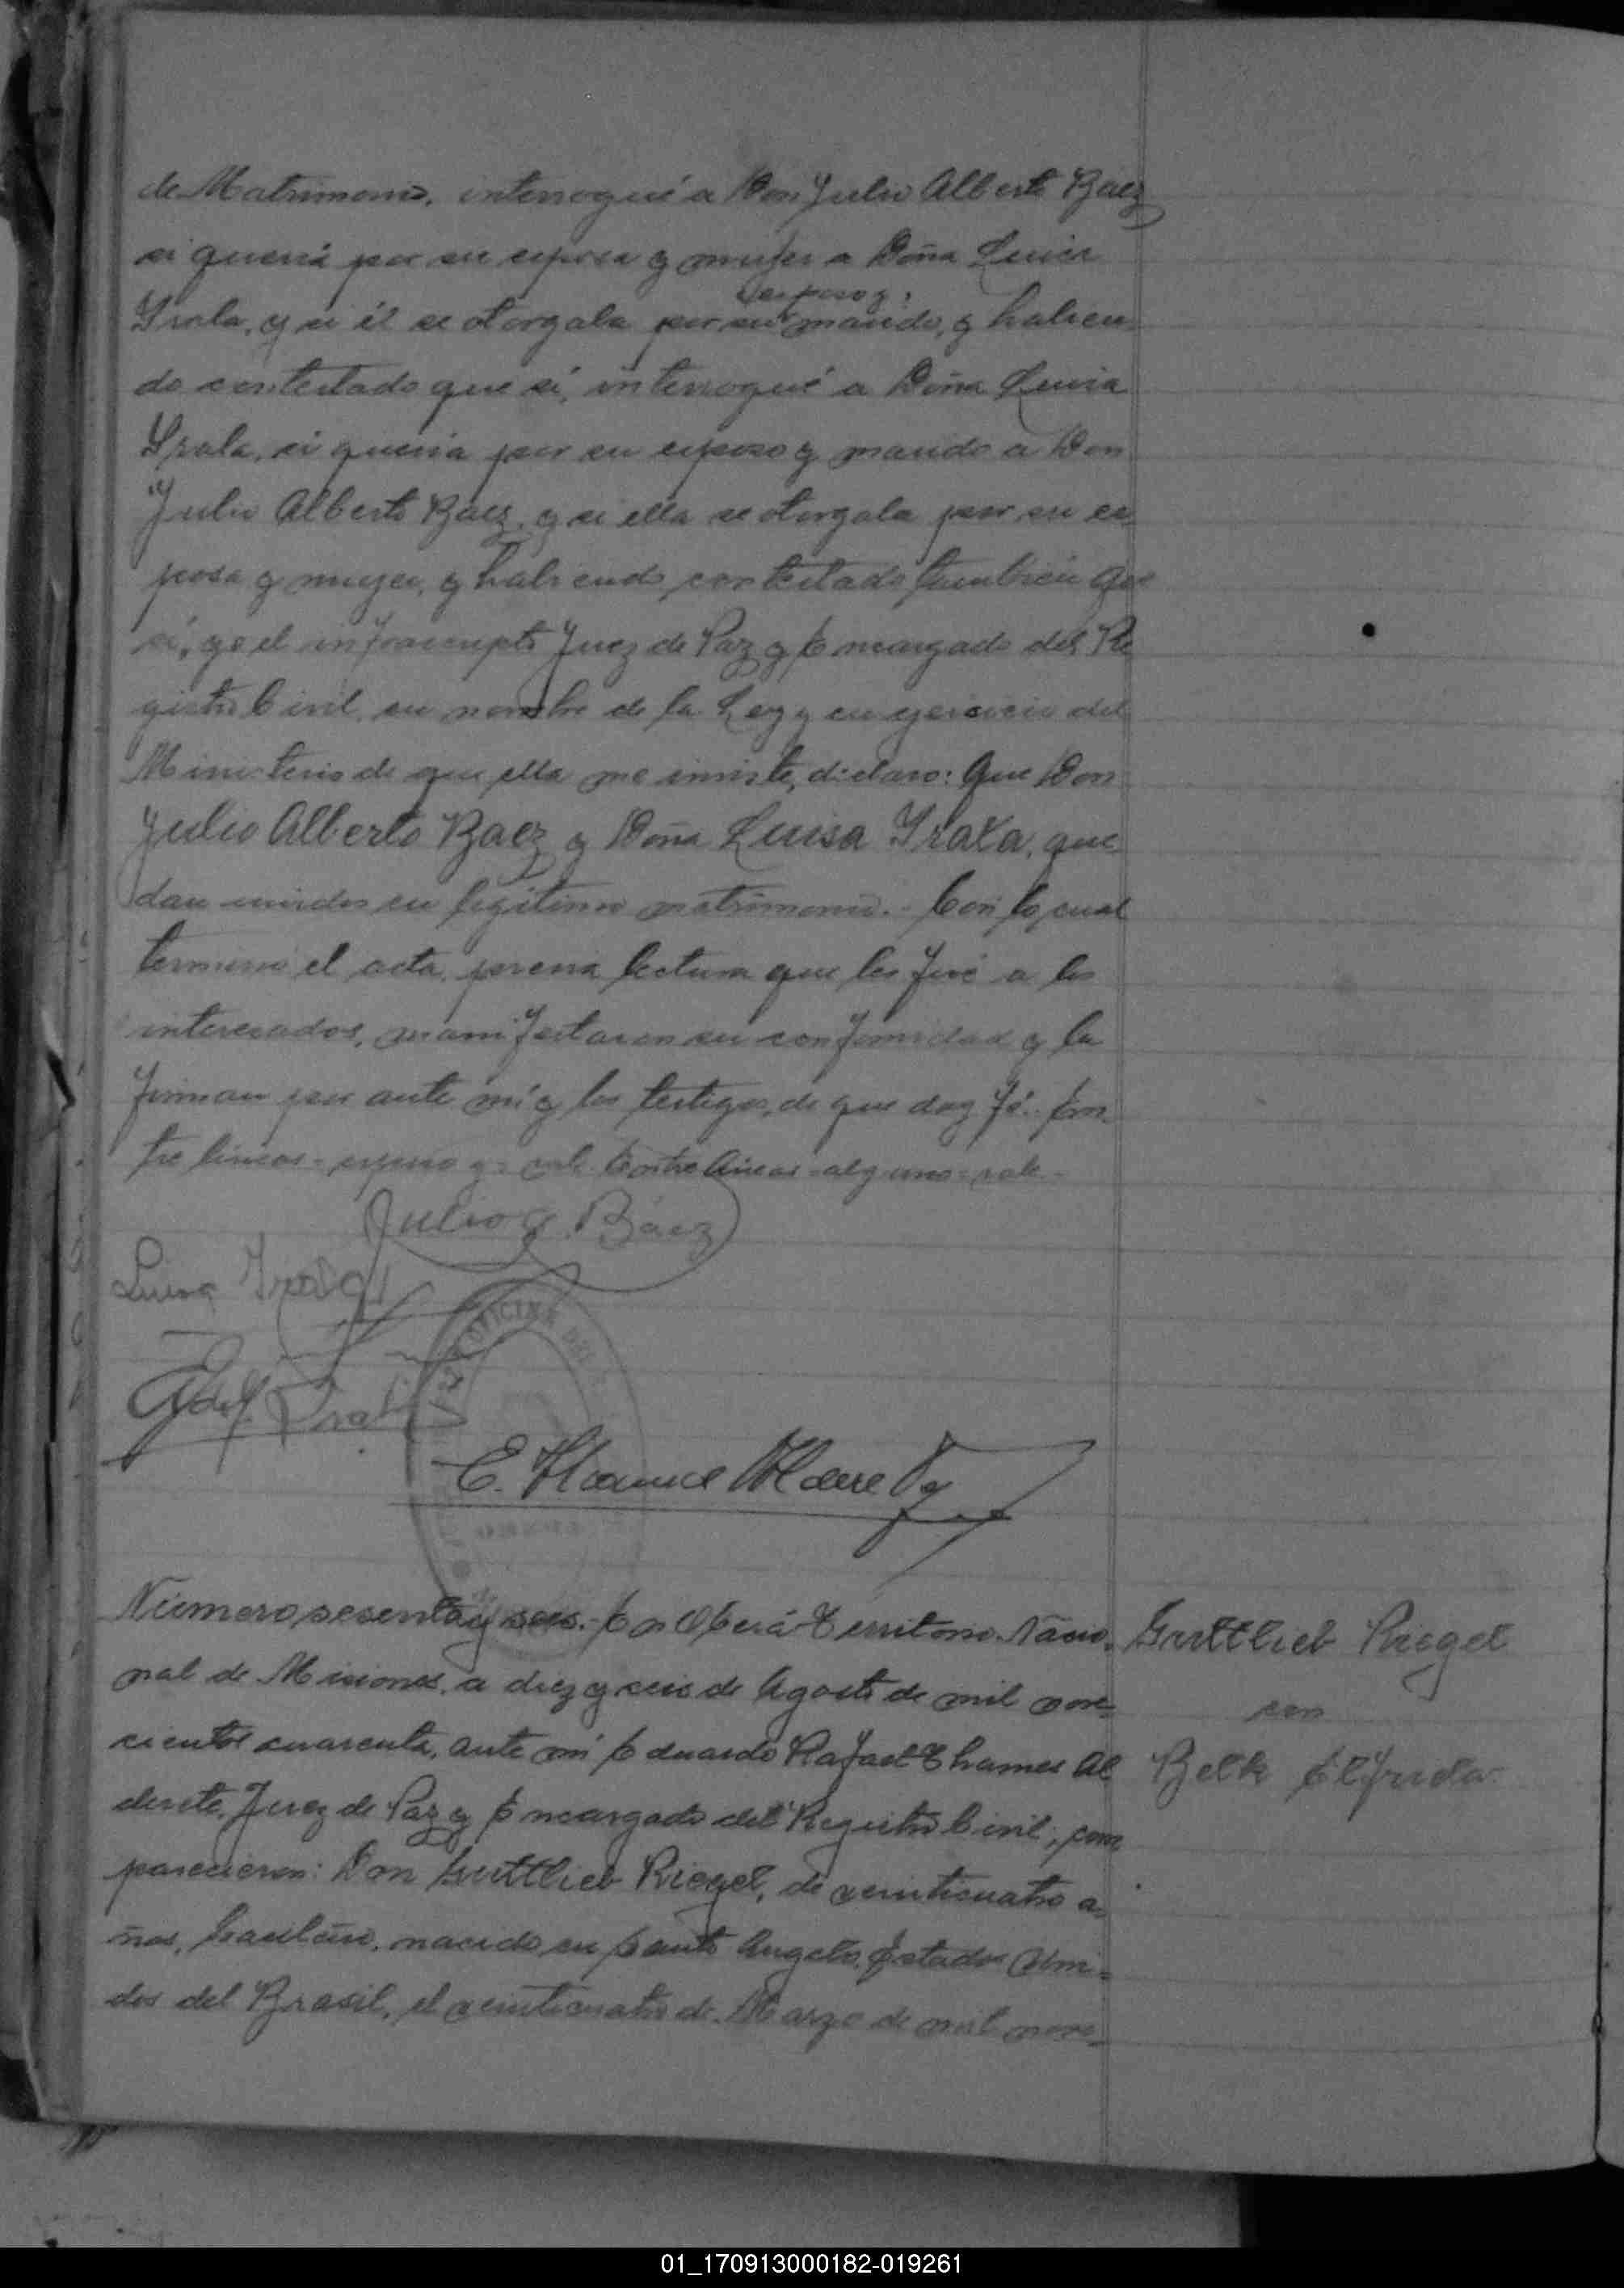 de Matrimonio, interrogué a Don Julio Alberto Baez
si quería por su esposa y mujer a Doña Luisa
esposo y
Irala, y si él se otorgaba por su marido, y habien-
do contestado que sí, interrogué a Doña Luisa
Irala, si quería por su esposo y marido a Don
Julio Alberto Baez, y si ella se otorgaba por su es-
posa y mujer, y habiendo contestado también que
sí, yo el infrascripto Juez de Paz y Encargado del Re
gistro Civil, en nombre de la Ley y en ejercicio del
Ministerio de que ella me inviste, declaro: Que Don
Julio Alberto Baez y Doña Luisa Irala, que-
dan unidos en legítimo matrimonio.- Con lo cual
terminó el acta, previa lectura que les fué a los
interesados, manifestaron su conformidad y la
firman por ante mí y los testigos, de que doy fé.- En-
tre líneas - esposo y - vale. Entre líneas - alguno - vale.-
Julio A. Báez
Luisa Irala
OFICINA DEL
Número sesenta y seis.- En Oberá Territorio Nacio-
nal de Misiones, a diez y seis de Agosto de mil nove-
cientos cuarenta, ante mí Eduardo Rafael Thames Al
derete, Juez de Paz y Encargado del Registro Civil, com-
parecieron: Don Guttlieb Riegel, de veinticuatro a-
ños, brasileño, nacido en Santo Angelo, Estados Uni-
dos del Brasil, el veinticuatro de Marzo de mil nove-
Guttlieb Riegel
con
Belk Elfrida
01_170913000182-019261